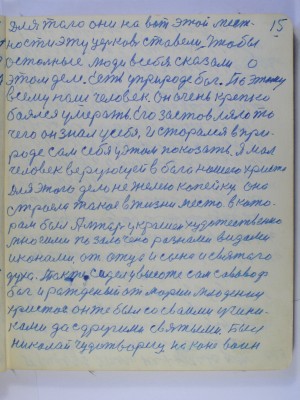 15
Для этого они на вот этой мест-
ности эту церковь ставели. Чтобы
остольные люди всебя сказали о
этом деле. Есть уприроде бог. Поэтому
всему наш человек. Он очень крепко
боялся умерать. Его заставляло то
чего он знал усебя, и старался впри-
роде сам себя уэтом показать. Я мол
человек верующей в бога нашего христа
для этого дела не жалею копейку она
строела такое в жизни место. в кото-
рам был Алтарь украшон художественно
многими позолочено разными видами
иконами от отца и сына и святого
духа. сидел увысоте сам саваоф
бог и ражденый от марии младенец
христос он же был со своими учини-
ками да с другими святыми. Был
николай чудотворец на коне воин